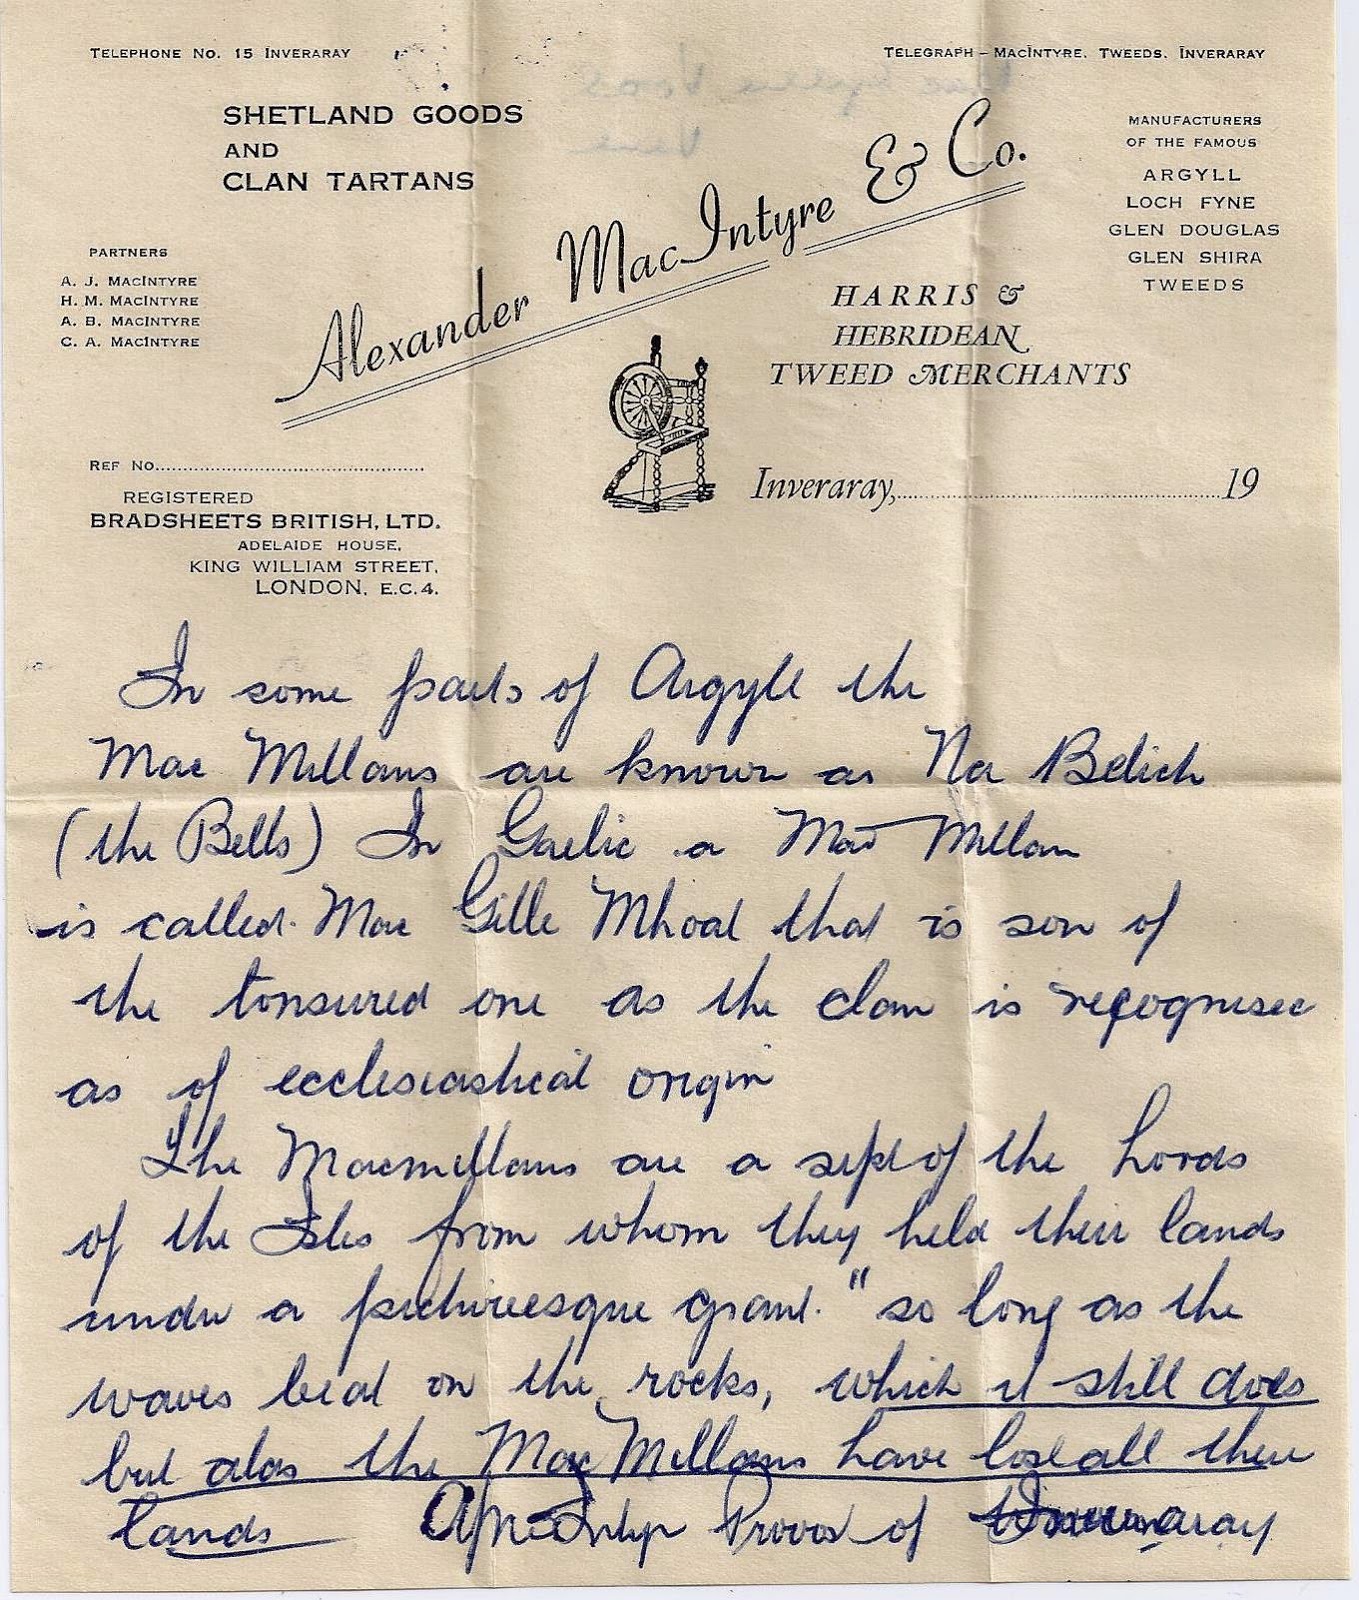 TELEPHONE NO. 15 INVERARAY
TELEGRAPH – MACINTYRE, TWEEDS, INVERARAY
SHETLAND GOODS
AND
CLAN TARTANS
Alexander MacIntyre & Co.
MANUFACTURERS
OF THE FAMOUS
ARGYLL
LOCH FYNE
GLEN DOUGLAS
GLEN SHIRA
TWEEDS
PARTNERS
A. J. MACINTYRE
H. M. MACINTYRE
A. B. MACINTYRE
C. A. MACINTYRE
HARRIS &
HEBRIDEAN
TWEED MERCHANTS
REF NO.
Inveraray, 19
REGISTERED
BRADSHEETS BRITISH, LTD.
ADELAIDE HOUSE,
KING WILLIAM STREET,
LONDON, E.C.4.
In some parts of Argyll the
Mac Millans are known as Na Belich
(the Bells) In Gaelic a Mac Millan
is called. Mac Gille Mhoal that is son of
the tonsured one as the clan is recognised
as of ecclesiastical origin
The Macmillans are a sept of the Lords
of the Isles from whom they held their lands
under a picturesque grant. "so long as the
waves beat on the rocks, which it still does
but alas the Mac Millans have lost all their
lands Provost of Inveraray